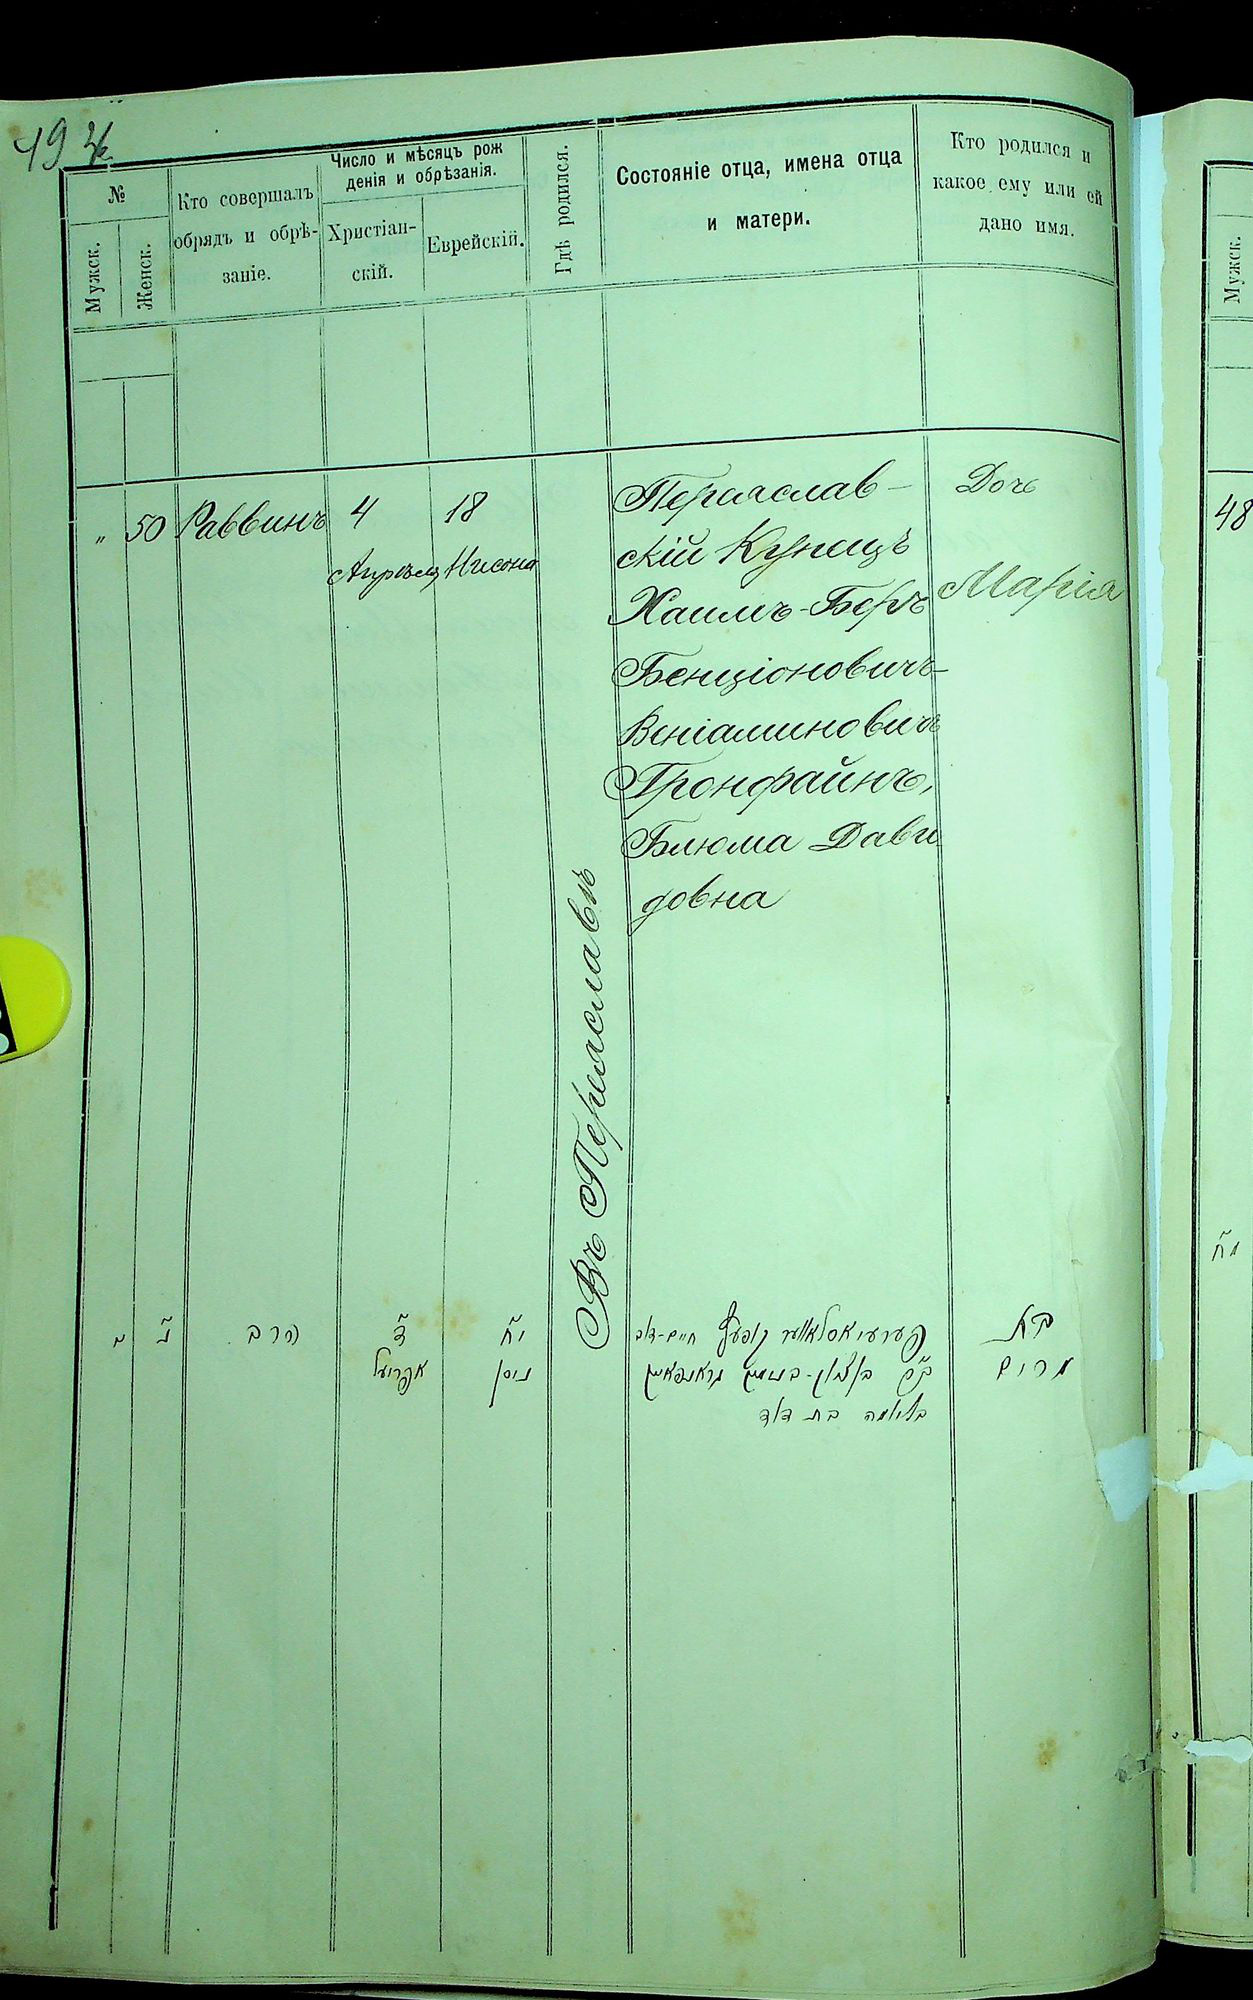 №
Мужск.
Женск.
Кто совершалъ
обрядъ и обрѣ-
заніе.
Число и мѣсяцъ рож
денія и обрѣзанія.
Христіан-
скій.
Еврейскій.
Гдѣ родился.
Состояніе отца, имена отца
и матери.
Кто родился и
какое ему или ей
дано имя.
Мужск.
"
50
Раввинъ
4
Апрѣля
18
Нисона
Въ Переяславѣ
Переяслав-
скій Купецъ
Хаимъ-Беръ
Бенціоновичъ-
Веніаминовичъ
Гронфайнъ,
Блюма Дави
довна
Дочь
Марія
48
נ
הרב
ד
אפריעל
יח
ניסן
חיים-דוב
בן ציון-בנימין גראנפאין
בלומה בת דוד
בת
מרים
מח